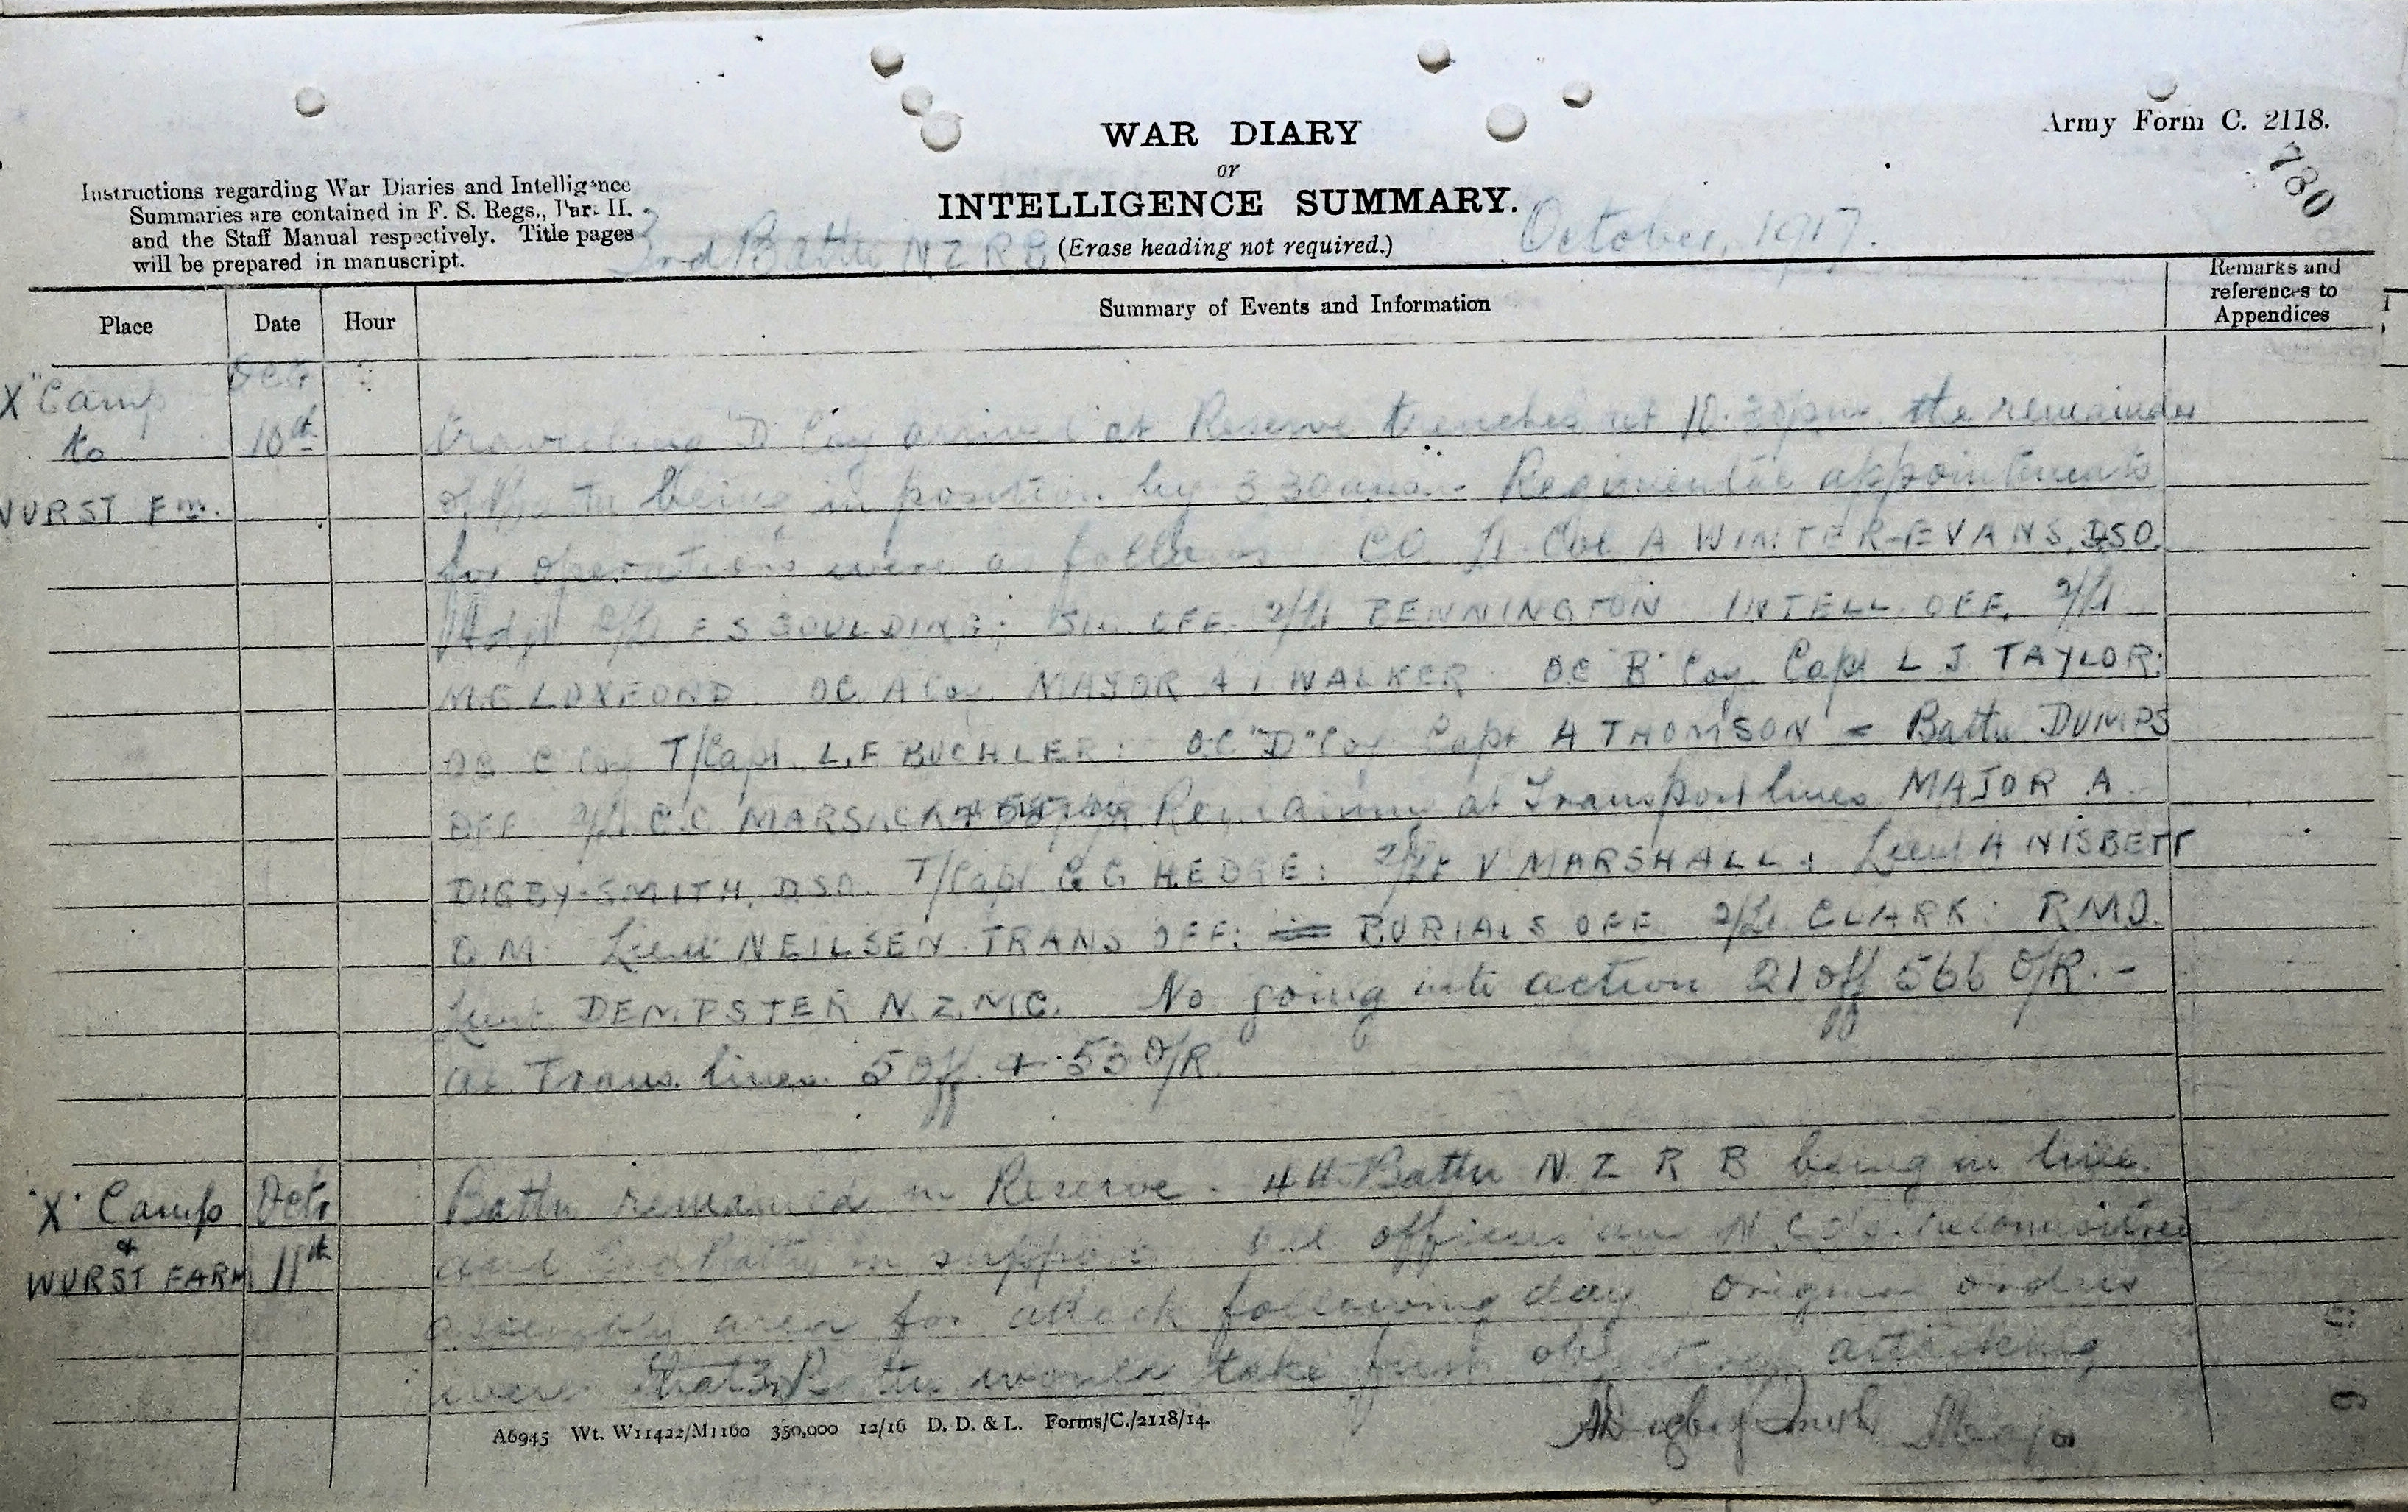 WAR DIARY
or
INTELLIGENCE SUMMARY.
(Erase heading not required.)
Army Form C. 2118.
780
Instructions regarding War Diaries and Intelligence
Summaries are contained in F. S. Regs., Part II.
and the Staff Manual respectively. Title pages
will be prepared in manuscript.
3rd Battn N Z R B
October, 1917.
Place Date Hour Summary of Events and Information Remarks and
references to
Appendices
X" Camp Octr
to 10th travelling D Coy arrived at Reserve trenches at 10.30pm the remainder
WURST Fm. of Battn being in position by 3 30am. Regimental appointments
for operations were as follows CO Lt. Col A WINTER-EVANS, DSO.
Adjt 2/Lt F S GOULDING; SIG. OFF. 2/Lt BENNINGTON INTELL. OFF. 2/Lt
M.G LOXFORD OC. A Coy. MAJOR A I WALKER OC "B" Coy. Capt L J TAYLOR:
OC C Coy T/Capt. L.F BUCHLER: OC "D" Coy Capt A THOMSON - Battn DUMPS
OFF 2/Lt. C.C MARSACK Remaining at Transport lines MAJOR A
DIGBY-SMITH, DSO. T/Capt G G HEDGE: 2/Lt V MARSHALL: Lieut A NISBETT
Q M. Lieut NEILSEN TRANS OFF: BURIALS OFF 2/Lt CLARK: RMO.
Lieut. DEMPSTER N.Z.M.C. No going into action 21 off 566 O/R. -
At Trans. lines 5 Off. + 53 O/R.
"X" Camp Octr Battn remained in Reserve. 4th Battn N Z R B being in line.
& and 2nd Battn in support. All officers and N.C.O's. reconnoitred
WURST FARM 11th assembly area for attack following day. Original orders
were that 3 Battn would take first objective attacking
A Digby Smith Major
A6945 Wt. W11422/M1160 350,000 12/16 D. D. & L. Forms/C./2118/14.